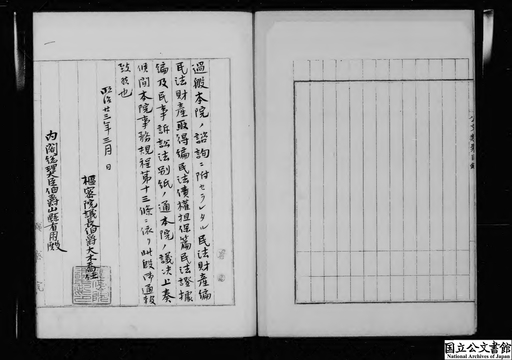 過般本院ノ諮詢ニ附セラレタル民法財產編
民法財產取得編民法債權担保篇民法證據
編及民事訴訟法別紙ノ通本院ノ議決上奏
候間本院事務規程第十三條ニ依リ此段及通報
候也
明治廿三年三月 日
樞密院議長伯爵大木喬任
内閣總理大臣伯爵山縣有朋殿
国立公文書館
National Archives of Japan